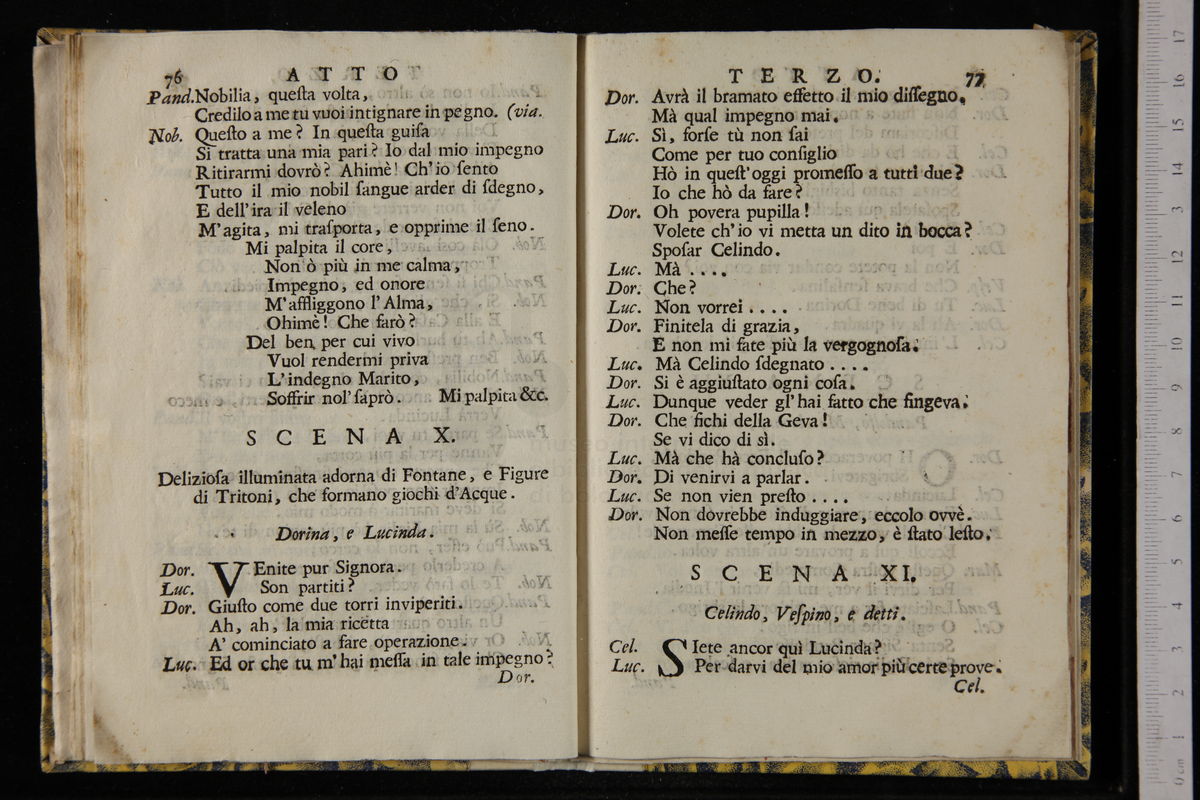 76 ATTO
Pand. Nobilia, queſta volta,
Credilo a me tu vuoi intignare in pegno. (via.
Nob. Queſto a me? In queſta guiſa
Si tratta una mia pari? Io dal mio impegno
Ritirarmi dovrò? Ahimè! Ch'io ſento
Tutto il mio nobil ſangue arder di ſdegno,
E dell'ira il veleno
M'agita, mi traſporta, e opprime il ſeno.
Mi palpita il core,
Non ò più in me calma,
Impegno, ed onore
M'affliggono l'Alma,
Ohimè! Che farò?
Del ben per cui vivo
Vuol rendermi priva
L'indegno Marito,
Soffrir nol' ſaprò. Mi palpita &c.
SCENA X.
Delizioſa illuminata adorna di Fontane, e Figure
di Tritoni, che formano giochi d'Acque.
Dorina, e Lucinda.
Dor. VEnite pur Signora.
Luc. Son partiti?
Dor. Giuſto come due torri inviperiti.
Ah, ah, la mia ricetta
A' cominciato a fare operazione.
Luc. Ed or che tu m'hai meſſa in tale impegno?
Dor.
TERZO. 77
Dor. Avrà il bramato effetto il mio diſſegno.
Mà qual impegno mai.
Luc. Sì, forſe tù non ſai
Come per tuo conſiglio
Hò in queſt'oggi promeſſo a tutti due?
Io che hò da fare?
Dor. Oh povera pupilla!
Volete ch'io vi metta un dito in bocca?
Spoſar Celindo.
Luc. Mà ....
Dor. Che?
Luc. Non vorrei ....
Dor. Finitela di grazia,
E non mi fate più la vergognoſa.
Luc. Mà Celindo ſdegnato ....
Dor. Si è aggiuſtato ogni coſa.
Luc. Dunque veder gl'hai fatto che fingeva.
Dor. Che fichi della Geva!
Se vi dico di sì.
Luc. Mà che hà concluſo?
Dor. Di venirvi a parlar.
Luc. Se non vien preſto ....
Dor. Non dovrebbe induggiare, eccolo ovvè.
Non meſſe tempo in mezzo, è ſtato leſto.
SCENA XI.
Celindo, Veſpino, e detti.
Cel. SIete ancor quì Lucinda?
Luc. Per darvi del mio amor più certe prove.
Cel.